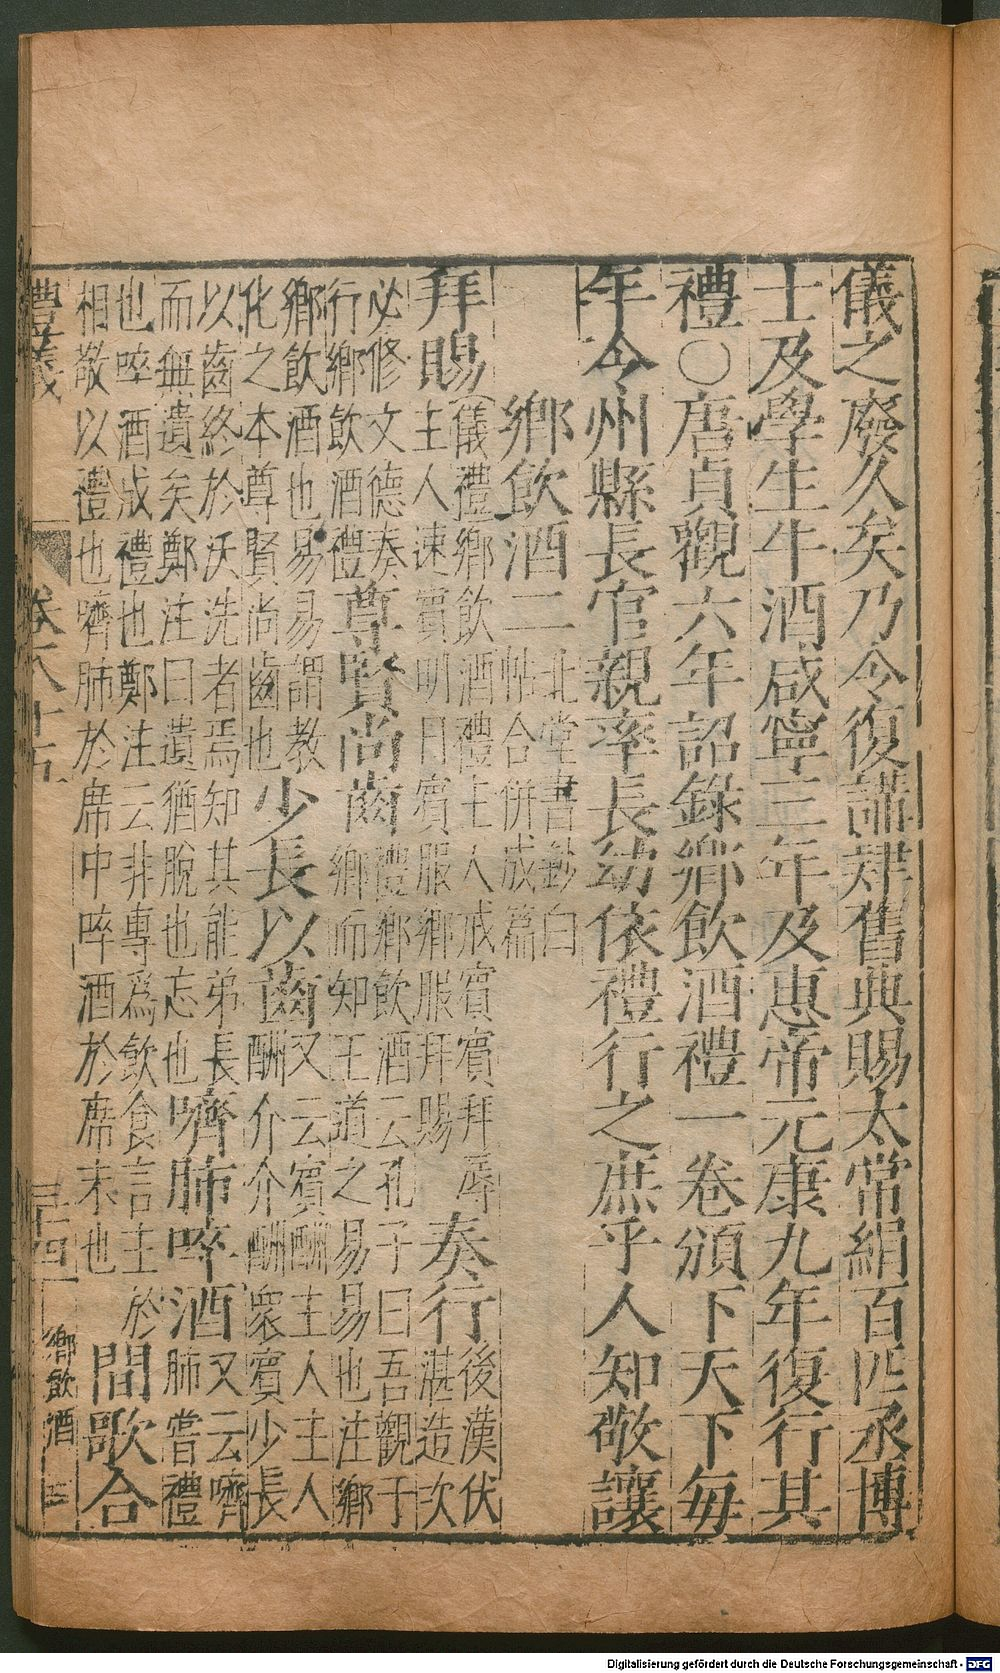 儀之廢久矣乃令復講肄舊典賜太常絹百匹丞博
士及學生牛酒咸寧三年及惠帝元康九年復行其
禮○唐貞觀六年詔錄鄉飲酒禮一卷頒下天下每
年令州縣長官親率長幼依禮行之庶乎人知敬讓
鄉飲酒二北堂書鈔白
帖合併成篇
拜賜儀禮鄉飲酒禮主人戒賓賓拜辱
主人速賓明日賓服鄉服拜賜奏行後漢伏
湛造次
必修文德奏
行鄉飲酒禮尊賢尚齒禮鄉飲酒云孔子曰吾觀于
鄉而知王道之易易也注鄉
鄉飲酒也易易謂教
化之本尊賢尚齒也少長以齒又云賓酬主人主人
酬介介酬衆賓少長
以齒終於沃洗者焉知其能弟長
而無遺矣鄭注曰遺猶脫也忘也嚌肺啐酒又云嚌
肺嘗禮
也啐酒成禮也鄭注云非專爲飲食言主於
相敬以禮也嚌肺於席中啐酒於席末也間歌合
禮義
卷八十五
三十四
鄉飲酒
二
Digitalisierung gefördert durch die Deutsche Forschungsgemeinschaft - DFG